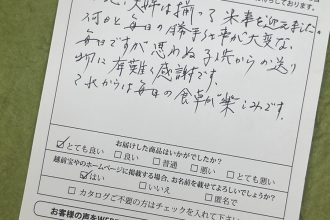 夫婦は揃って米寿を迎えました。
何かと毎日の勝手仕事が大変な
毎日ですが思わぬ子供からの送り
物に有難く感謝です。
これからは毎日の食卓が楽しみです。
お届けした商品はいかがでしたか？
☑とても良い □良い □普通 □悪い □とても悪い
越前宝やのホームページに掲載する場合、お名前を載せてよろしいでしょうか？
☑はい □いいえ □匿名で
□カタログご不要の方はチェックを入れて下さい
お客様の声をWEB